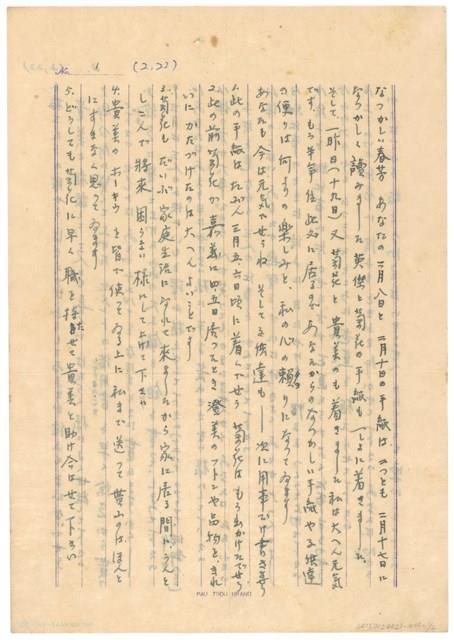 (2.22)
なつかしい春芳 あなたの二月八日と二月十日の手紙は二つとも二月十七日に
なつかしく讀みました 英傑と菊花の手紙も一しょに着きました
そして、一昨日(十九日)又菊花と貴美のも着きました 私は大へん元気
です、もう半年位此処に居るので、あなたからのなつかしい手紙や子供達
の便りは何よりの楽しみと、私の心の頼りになってゐます
あなたも今は元気でせうね そして子供達も——次に用事だけ書きませう
1.此の手紙はたぶん三月五六日頃に着くでせう 菊花はもう出かけたでせう
2.此の前菊花が嘉義に四五日居ったとき澄美のフトンや品物を、きれ
いにかたづけたのは大へんよいことです
3.菊花もだいぶ家庭生活になれて来ましたから家に居る間に、うんと
しこんで将来困らない様にして上げて下さい
4.貴美のホーキを皆で使ってゐる上に私まで送って貰ふのはほんと
にすまなく思ってゐます
5.どうしても菊花に早く職を持たせて貴美を助け合はせて下さい